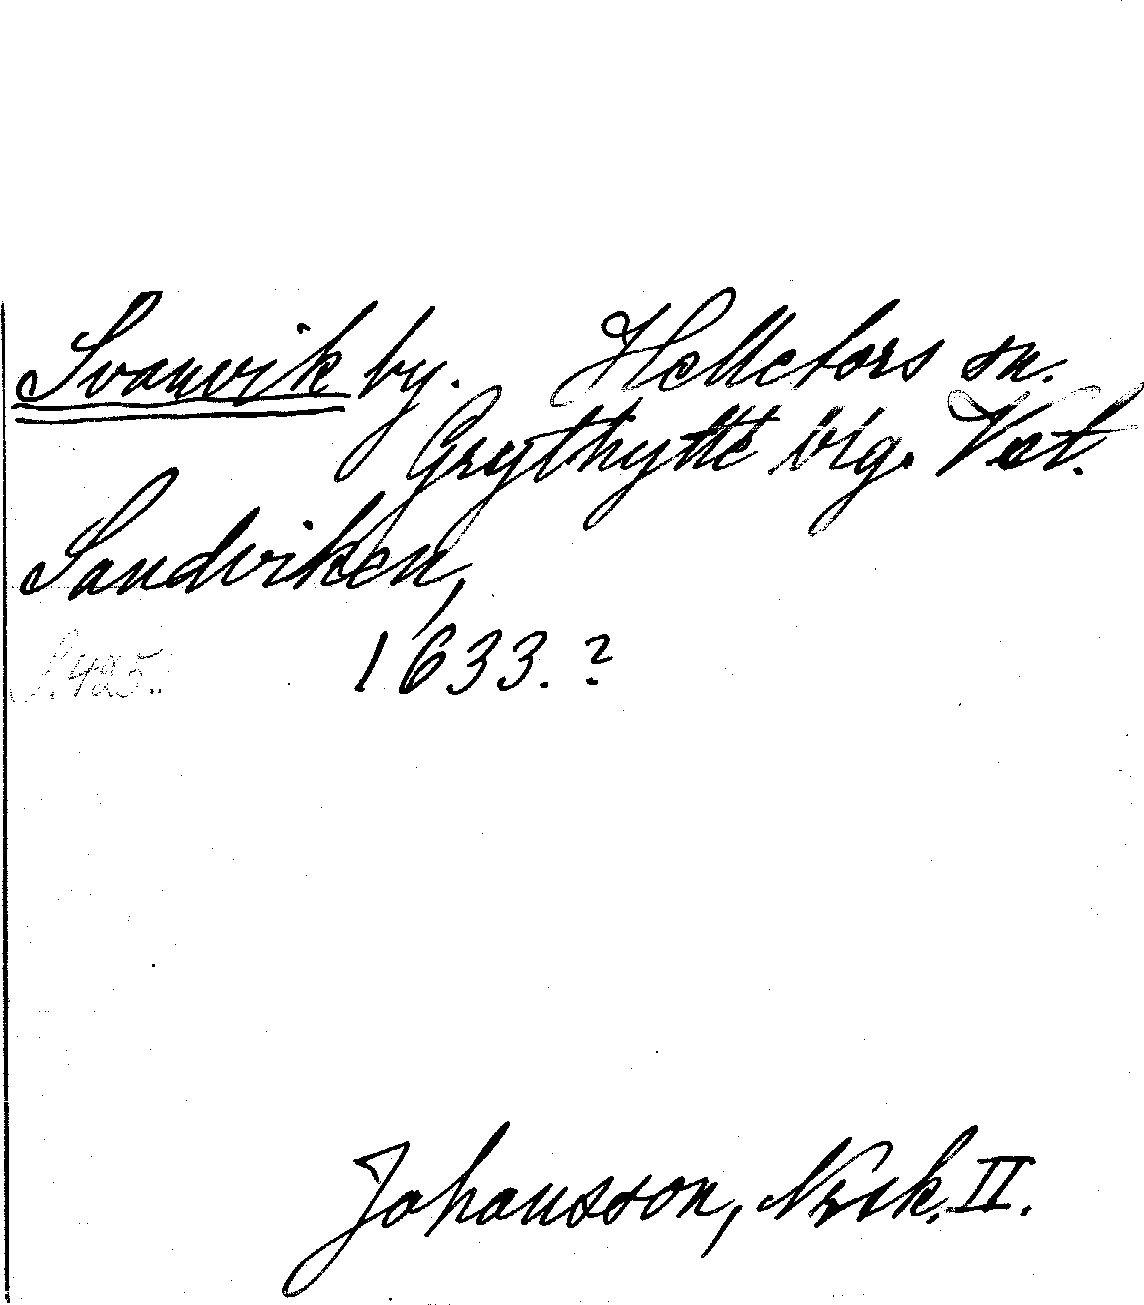 Svanvik by. Hellefors sn.
Grythytte blg. Vst.
Sandviken,
S. 425. 1633.?
Johansson, Nrsk. II.